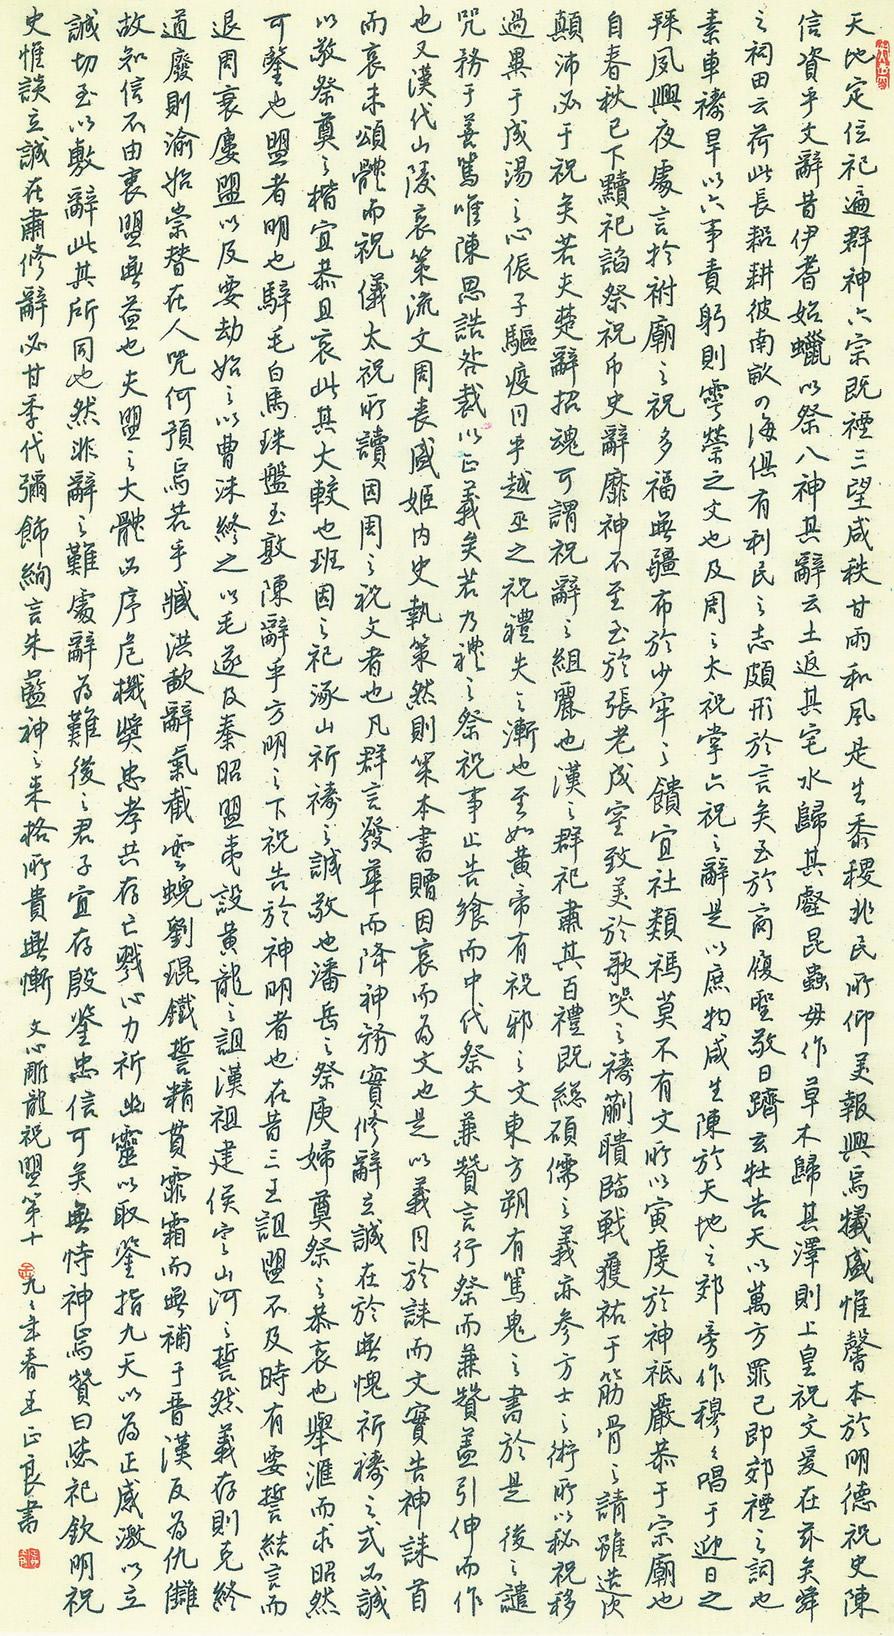 天地定位祀遍群神六宗既禋三望咸秩甘雨和風是生黍稷兆民所仰美報興焉犧盛惟馨本於明德祝史陳
信資乎文辭昔伊耆始蠟以祭八神其辭云土返其宅水歸其壑昆蟲毋作草木歸其澤則上皇祝文爰在茲矣舜
之祠田云荷此長耜耕彼南畝四海俱有利民之志頗形於言矣至於商履聖敬日躋玄牡告天以萬方罪己即郊禋之詞也
素車禱旱以六事責躬則雩禜之文也及周之太祝掌六祝之辭是以庶物咸生陳於天地之郊旁作穆々唱于迎日之
拜夙興夜處言於祔廟之祝多福無疆布於少牢之饋宜社類禡莫不有文所以寅虔於神祗嚴恭于宗廟也
自春秋已下黷祀諂祭祝币史辭靡神不至至於張老成室致美於歌哭之禱蒯聵臨戰獲祐于筋骨之請雖造次
顛沛必于祝矣若夫楚辭招魂可謂祝辭之組麗也漢之群祀肅其百禮既總碩儒之義亦參方士之術所以秘祝移
過異于成湯之心侲子驅疫同乎越巫之祝禮失之漸也至如黄帝有祝邪之文東方朔有罵鬼之書於是後之譴
咒務于善罵唯陳思誥咎裁以正義矣若乃禮之祭祝事止告饗而中代祭文兼贊言行祭而兼贊蓋引伸而作
也又漢代山陵哀策流文周喪盛姬内史執策然則策本書贈因哀而為文也是以義同於誄而文實告神誄首
而哀末頌體而祝儀太祝所讀因周之祝文者也凡群言發華而降神務實修辭立誠在於無愧祈禱之式必誠
以敬祭奠之楷宜恭且哀此其大較也班固之祀涿山祈禱之誠敬也潘岳之祭庾婦奠祭之恭哀也舉滙而求昭然
可鑒也盟者明也騂毛白馬珠盤玉敦陳辭乎方明之下祝告於神明者也在昔三王詛盟不及時有要誓結言而
退周衰屢盟以及要劫始之以曹沫終之以毛遂及秦昭盟夷設黄龍之詛漢祖建侯定山河之誓然義存則克終
道廢則渝始崇替在人咒何預焉若乎臧洪歃辭氣截雲蜺劉琨鐵誓精貫霏霜而無補于晋漢反為仇讎
故知信不由衷盟無益也夫盟之大體必序危機獎忠孝共存亡戮心力祈幽靈以取鑒指九天以為正感激以立
誠切至以敷辭此其所同也然非辭之難處辭為難後之君子宜存殷鑒忠信可矣無恃神焉贊曰毖祀欽明祝
史惟談立誠在肅修辭必甘季代彌飾絢言朱藍神之来格所貴無慚 文心雕龍祝盟第十 九九年春王正良書